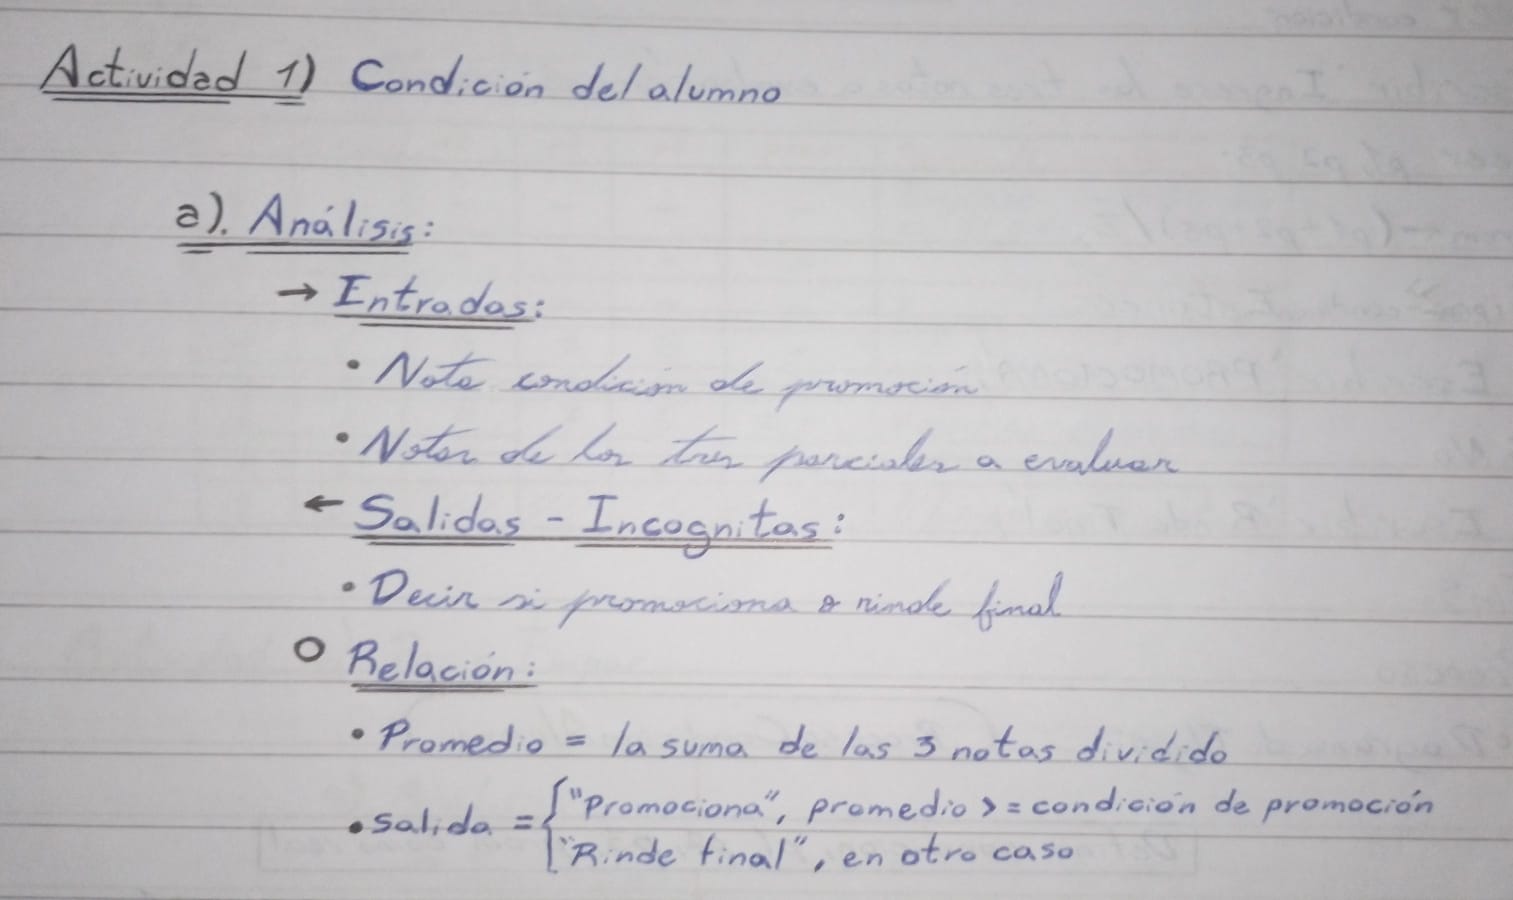 Actividad 1) Condición del alumno
a). Análisis:
→ Entradas:
• Nota condición de promoción
• Notas de los tres parciales a evaluar
← Salidas - Incognitas:
• Decir si promociona o rinde final
O Relación:
• Promedio = la suma de las 3 notas dividido
• salida = { "Promociona", promedio >= condición de promoción
"Rinde final", en otro caso